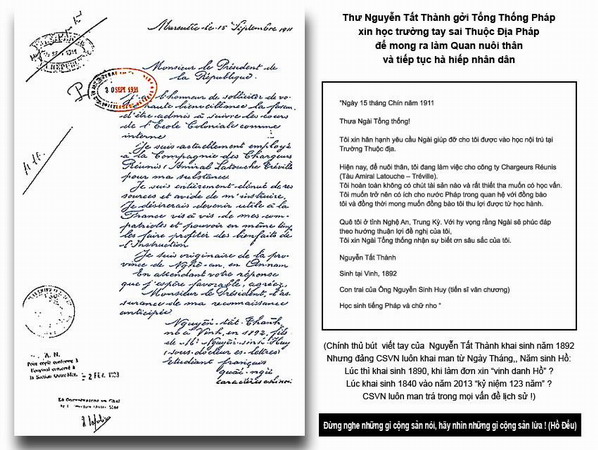 Marseille le 15 Septembre 1911
Monsieur le Président de
la République.
J'ai l'honneur de solliciter de
votre haute bienveillance la faveur
d'être admis à suivre les cours
de l'Ecole Coloniale comme
interne
Je suis actuellement employé
à la Compagnie des Chargeurs
Réunis (Amiral Latouche Tréville
pour ma subsistance
Je suis entièrement dénué de res
sources et avide de m'instruire.
Je désirerais devenir utile à la
France vis à vis de mes com-
patriotes et pouvoir en même temps
les faire profiter des bienfaits de
l'Instruction
Je suis originaire de la pro
vince de Nghê-an, en Annam
En attendant votre réponse
que j'espère favorable, agréez
Monsieur le Président, l'as
surance de ma reconnaissance
anticipée
Nguyễn tất Thành
né à Vinh, en 1892, fils
de Mr Nguyễn sinh Huy
(sous-docteur ès-lettres
Etudiant français
quốc-ngữ
caractères chinois
Thư Nguyễn Tất Thành gởi Tổng Thống Pháp
xin học trường tay sai Thuộc Địa Pháp
để mong ra làm Quan nuôi thân
và tiếp tục hà hiếp nhân dân
"Ngày 15 tháng Chín năm 1911
Thưa Ngài Tổng thống!
Tôi xin hân hạnh yêu cầu Ngài giúp đỡ cho tôi được vào học nội trú tại
Trường Thuộc địa.
Hiện nay, để nuôi thân, tôi đang làm việc cho công ty Chargeurs Réunis
(Tàu Amiral Latouche – Tréville).
Tôi hoàn toàn không có chút tài sản nào và rất thiết tha muốn có học vấn.
Tôi muốn trở nên có ích cho nước Pháp trong quan hệ với đồng bào
tôi và đồng thời mong muốn đồng bào tôi thu lợi được từ học hành.
Quê tôi ở tỉnh Nghệ An, Trung Kỳ. Với hy vọng rằng Ngài sẽ phúc đáp
theo hướng thuận lợi đề nghị của tôi,
Tôi xin Ngài Tổng thống nhận sự biết ơn sâu sắc của tôi.
Nguyễn Tất Thành
Sinh tại Vinh, 1892
Con trai của Ông Nguyễn Sinh Huy (tiến sĩ văn chương)
Học sinh tiếng Pháp và chữ nho "
(Chính thủ bút viết tay của Nguyễn Tất Thành khai sinh năm 1892
Nhưng đảng CSVN luôn khai man từ Ngày Tháng,, Năm sinh Hồ:
Lúc thì khai sinh 1890, khi làm đơn xin "vinh danh Hồ" ?
Lúc khai sinh 1840 vào năm 2013 "kỷ niệm 123 năm" ?
CSVN luôn man trá trong mọi vấn đề lịch sử !)
Đừng nghe những gì cộng sản nói, hãy nhìn những gì cộng sản lừa ! (Hồ Đểu)